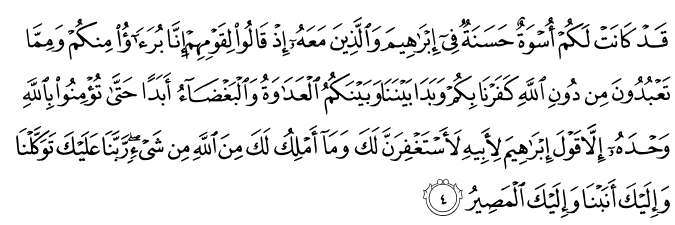 قَدْ كَانَتْ لَكُمْ أُسْوَةٌ حَسَنَةٌ فِىٓ إِبْرَٰهِيمَ وَٱلَّذِينَ مَعَهُۥٓ إِذْ قَالُوا۟ لِقَوْمِهِمْ إِنَّا بُرَءَٰٓؤُا۟ مِنكُمْ وَمِمَّا
تَعْبُدُونَ مِن دُونِ ٱللَّهِ كَفَرْنَا بِكُمْ وَبَدَا بَيْنَنَا وَبَيْنَكُمُ ٱلْعَدَٰوَةُ وَٱلْبَغْضَآءُ أَبَدًا حَتَّىٰ تُؤْمِنُوا۟ بِٱللَّهِ
وَحْدَهُۥٓ إِلَّا قَوْلَ إِبْرَٰهِيمَ لِأَبِيهِ لَأَسْتَغْفِرَنَّ لَكَ وَمَآ أَمْلِكُ لَكَ مِنَ ٱللَّهِ مِن شَىْءٍ ۖ رَّبَّنَا عَلَيْكَ تَوَكَّلْنَا
وَإِلَيْكَ أَنَبْنَا وَإِلَيْكَ ٱلْمَصِيرُ ٤